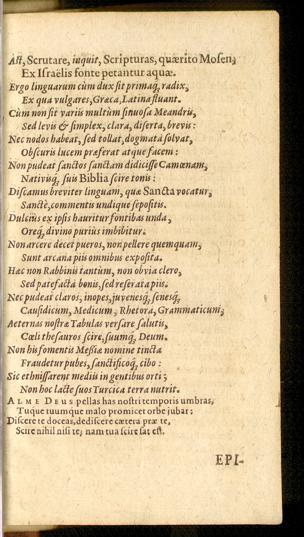 Ast, Scrutare, inquit, Scripturas, quærito Mosen,
Ex Israëlis fonte petantur aquæ.
Ergo linguarum cùm dux sit primaq́, radix,
Ex qua vulgares, Græca, Latina fluant.
Cùm non sit variis multùm sinuosa Meandris,
Sed levis & simplex, clara, diserta, brevis:
Nec nodos habeat, sed tollat, dogmata solvat,
Obscuris lucem præferat atque facem:
Non pudeat sanctos sanctam didicisse Camœnam,
Nativisq́, suis Biblia scire tonis:
Discamus breviter linguam, quæ Sancta vocatur,
Sanctè, commentis undique sepositis.
Dulciùs ex ipsis hauritur fontibus unda,
Oreq́, divino puriùs imbibitur.
Non arcere decet pueros, non pellere quemquam,
Sunt arcana piis omnibus exposita.
Hac non Rabbinis tantùm, non obvia clero,
Sed patefacta bonis, sed reserata piis.
Nec pudeat claros, inopes, juvenesq́, senesq́,
Causidicum, Medicum, Rhetora, Grammaticum;
Aeternas nostræ Tabulas versare salutis,
Cœli thesauros scire, suumq́, Deum.
Non his fomentis Messiæ nomine tincta
Fraudetur pubes, sanctificoq́, cibo:
Sic ethnissarent mediis in gentibus orti;
Non hoc lacte suos Turcica terra nutrit.
ALME DEUS pellas has nostri temporis umbras,
Tuque tuumque malo promicet orbe jubar:
Discere te doceas, dediscere cætera præ te,
Scire nihil nisi te; nam tua scire sat est.
EPI-